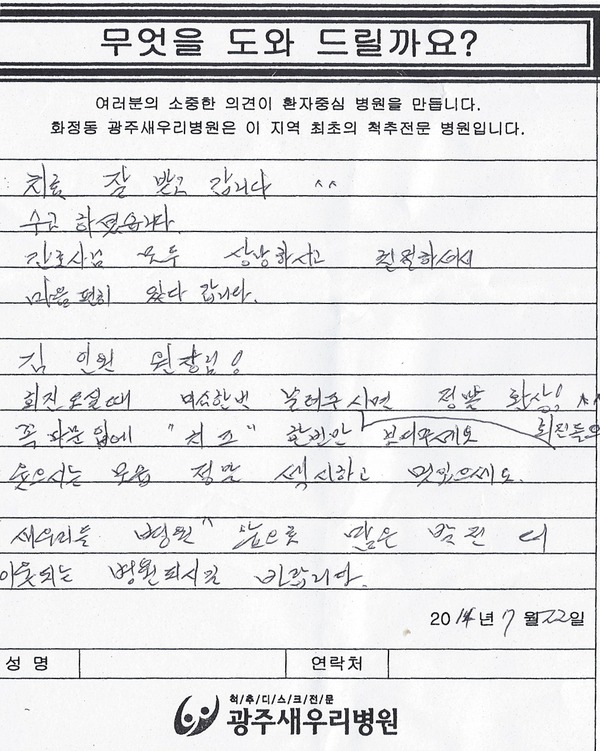 무엇을 도와 드릴까요?
여러분의 소중한 의견이 환자중심 병원을 만듭니다.
화정동 광주새우리병원은 이 지역 최초의 척추전문 병원입니다.
치료 잘 받고 갑니다 ^^
수고 하셨습니다.
간호사님 모두 상냥하시고 친절하셔서
마음 편히 있다 갑니다.
김 인환 원장님!
회진 오실때 미소한번 날려주시면 정말 환상! ^^
꼭 화문 입에 "치즈" 한번만 보여주세요 회진들
웃으시는 모습 정말 섹시하고 멋있으세요.
새우리들 병원" 앞으로 많은 발전 더
이웃되는 병원되시길 바랍니다.
2014년 7월 22일
성 명 연락처
척/추/디/스/크/전/문
광주새우리병원